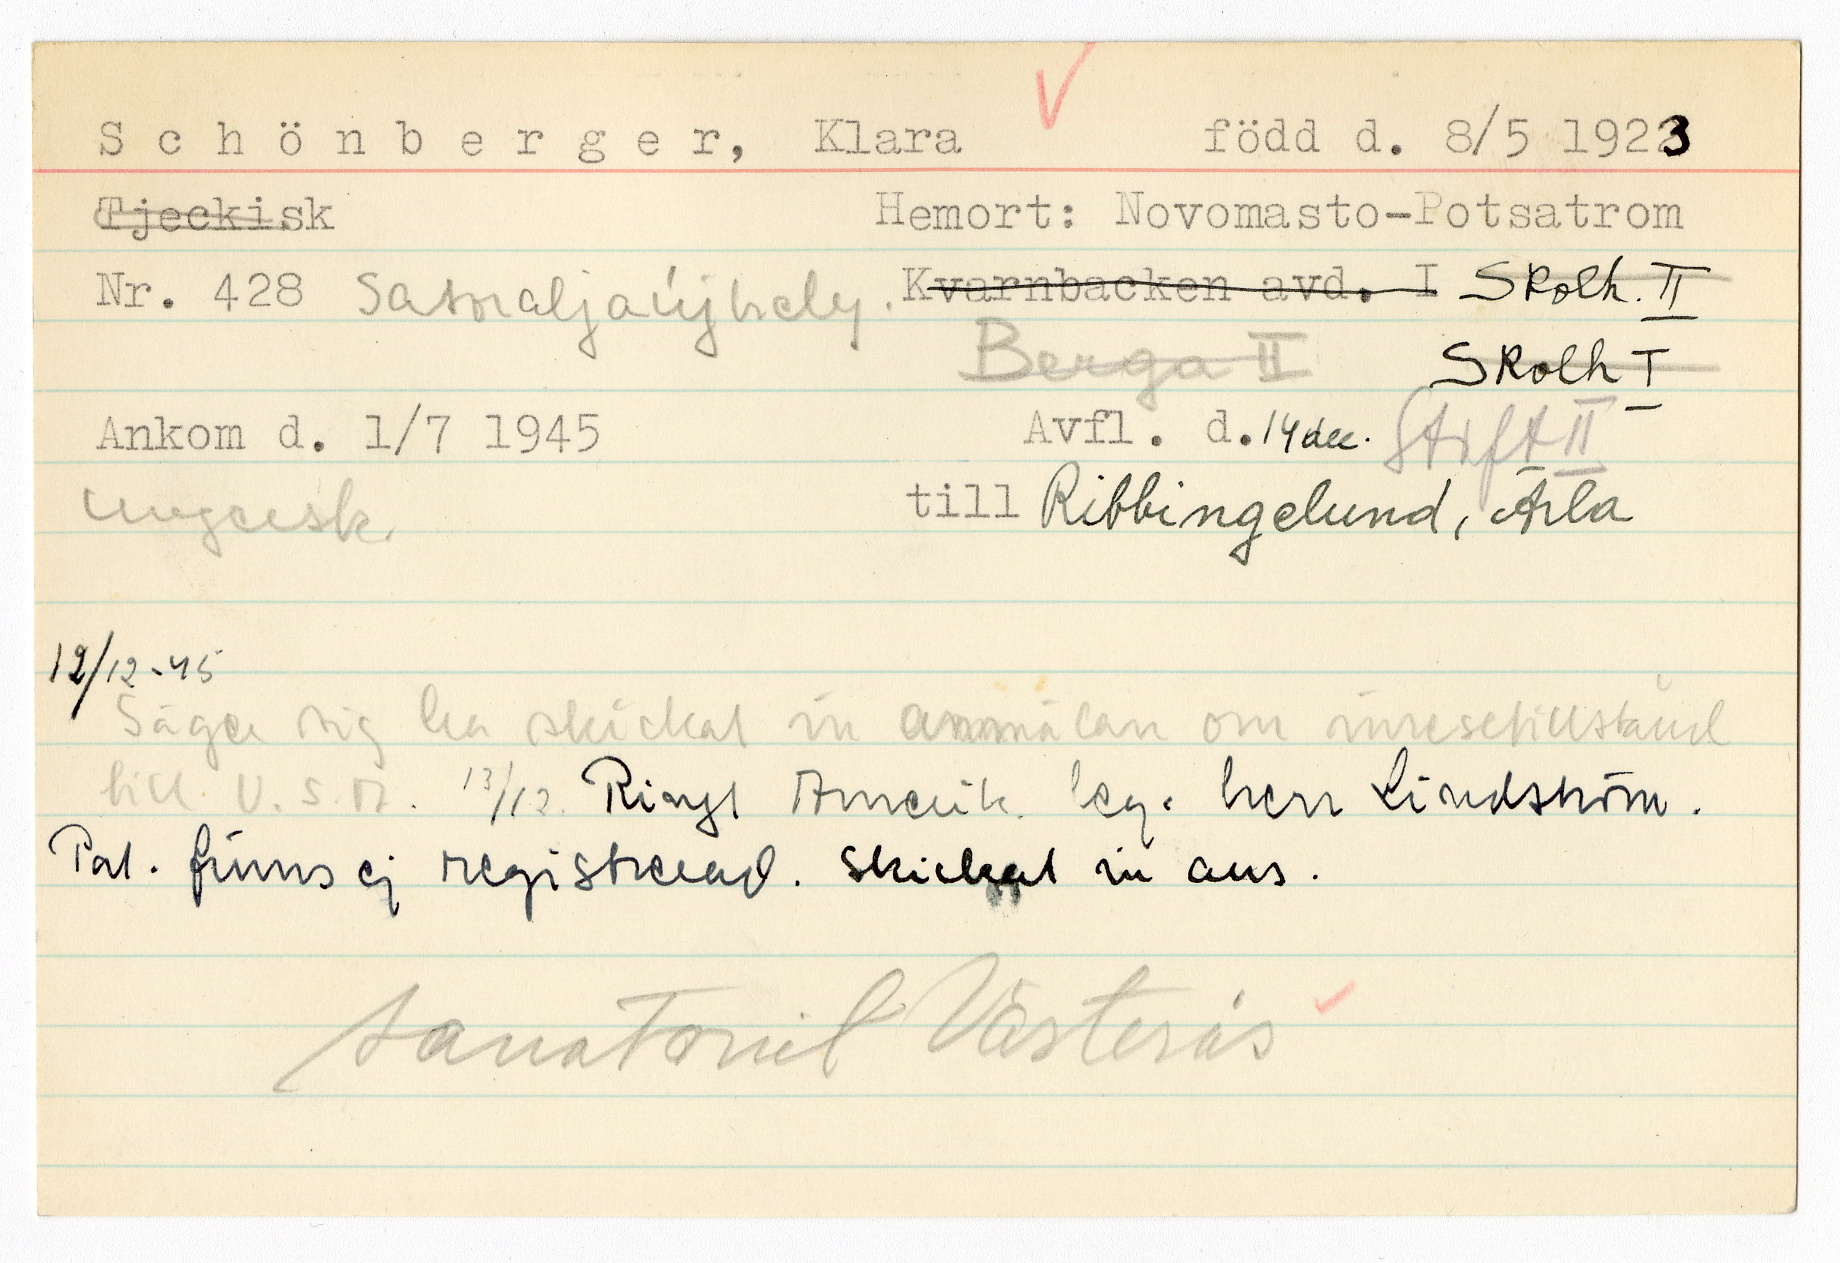 Schönberger, Klara född d. 8/5 1923
Tjeckisk Hemort: Novomasto-Potsatrom
Nr. 428 Satoraljaújhely. Kvarnbacken avd. I Skolh. II
Berga II Skolh I
Ankom d. 1/7 1945 Avfl. d. 14 dec. Stift II
Ungersk. till Ribbingelund, Ärla
12/12-45
Säger sig ha skickat in anmälan om inresetillstånd
till U.S.A. 13/12. Ringt Amerik. leg. herr Lindström.
Pat. finns ej registrerad. Skickat in ans.
Sanatoriet Västerås